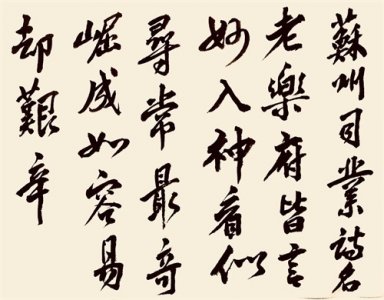 蘇州司業詩名
老樂府皆言
妙入神看似
尋常最奇
崛成如容易
却艱辛